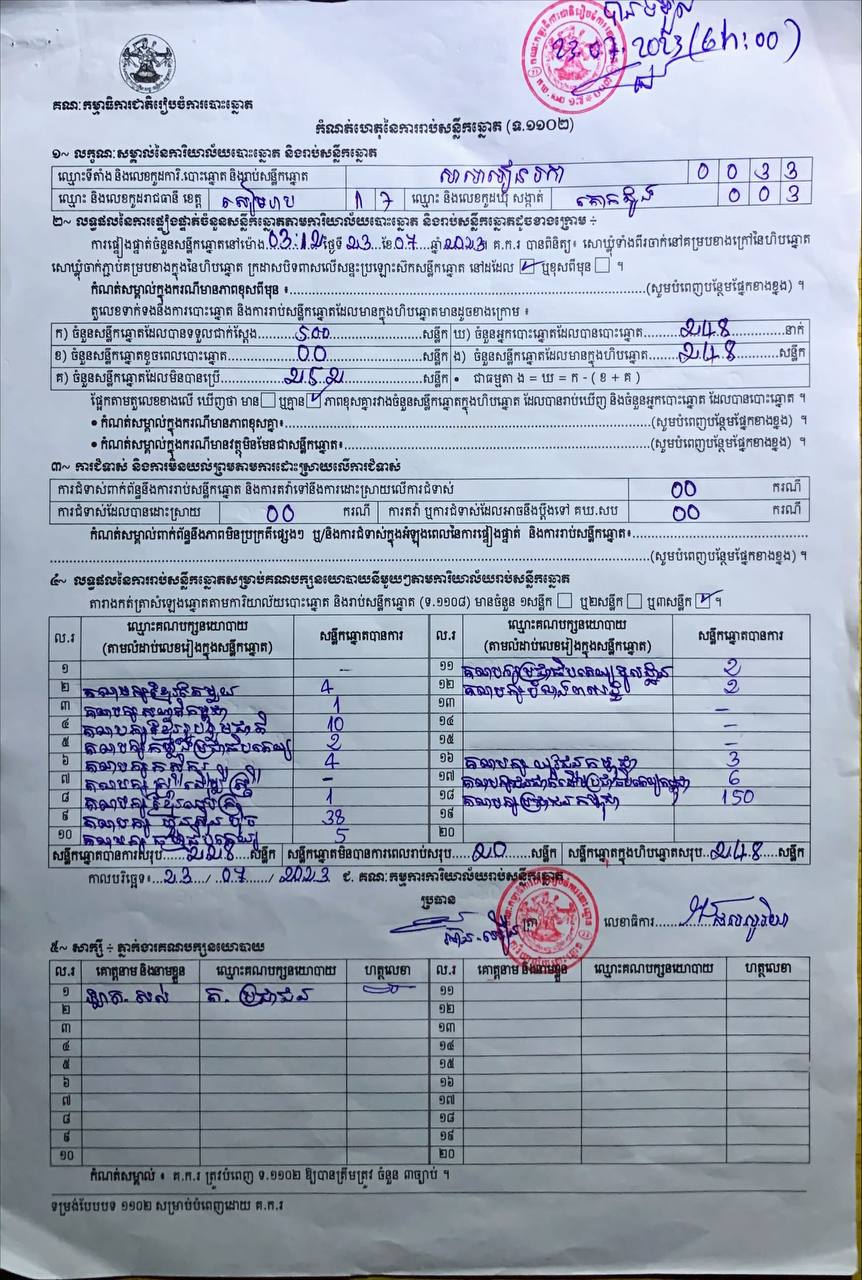 បានទទួល
23.07.2023 (6h:00)
គណៈកម្មាធិការជាតិរៀបចំការបោះឆ្នោត
កំណត់ហេតុនៃការរាប់សន្លឹកឆ្នោត (ទ.១១០២)
១~ លក្ខណៈសម្គាល់នៃការិយាល័យបោះឆ្នោត និងរាប់សន្លឹកឆ្នោត
ឈ្មោះទីតាំង និងលេខកូដការិ.បោះឆ្នោត និងរាប់សន្លឹកឆ្នោត សាលា 0 0 3 3
ឈ្មោះ និងលេខកូដរាជធានី ខេត្ត សៀមរាប 1 7 ឈ្មោះ និងលេខកូដឃុំ សង្កាត់ 0 0 3
២~ លទ្ធផលនៃការផ្ទៀងផ្ទាត់ចំនួនសន្លឹកឆ្នោតតាមការិយាល័យបោះឆ្នោត និងរាប់សន្លឹកឆ្នោតដូចខាងក្រោម ÷
ការផ្ទៀងផ្ទាត់ចំនួនសន្លឹកឆ្នោតនៅម៉ោង 03:12 ថ្ងៃទី 23 ខែ 07 ឆ្នាំ 2023 គ.ក.រ បានពិនិត្យ៖ សោឃ្លុំទាំងពីរចាក់នៅគម្របខាងក្រៅនៃហិបឆ្នោត
សោឃ្លុំចាក់ភ្ជាប់គម្របខាងក្នុងនៃហិបឆ្នោត ក្រដាសបិទពាសលើសន្ទះប្រឡោះស៊កសន្លឹកឆ្នោត នៅដដែល ☑ ឬខុសពីមុន ☐ ។
កំណត់សម្គាល់ក្នុងករណីមានភាពខុសពីមុន ៖ (សូមបំពេញបន្ថែមផ្នែកខាងខ្នង) ។
តួលេខទាក់ទងនឹងការបោះឆ្នោត និងការរាប់សន្លឹកឆ្នោតដែលមានក្នុងហិបឆ្នោតមានដូចខាងក្រោម ៖
ក) ចំនួនសន្លឹកឆ្នោតដែលបានទទួលជាក់ស្តែង 500 សន្លឹក ឃ) ចំនួនអ្នកបោះឆ្នោតដែលបានបោះឆ្នោត 248 នាក់
ខ) ចំនួនសន្លឹកឆ្នោតខូចពេលបោះឆ្នោត 00 សន្លឹក ង) ចំនួនសន្លឹកឆ្នោតដែលមានក្នុងហិបឆ្នោត 248 សន្លឹក
គ) ចំនួនសន្លឹកឆ្នោតដែលមិនបានប្រើ 252 សន្លឹក • ជាធម្មតា ង = ឃ = ក - ( ខ + គ )
ផ្អែកតាមតួលេខខាងលើ ឃើញថា មាន ☐ ឬគ្មាន ☑ ភាពខុសគ្នារវាងចំនួនសន្លឹកឆ្នោតក្នុងហិបឆ្នោត ដែលបានរាប់ឃើញ និងចំនួនអ្នកបោះឆ្នោត ដែលបានបោះឆ្នោត ។
• កំណត់សម្គាល់ក្នុងករណីមានភាពខុសគ្នា៖ (សូមបំពេញបន្ថែមផ្នែកខាងខ្នង) ។
• កំណត់សម្គាល់ក្នុងករណីមានវត្ថុមិនមែនជាសន្លឹកឆ្នោត៖ (សូមបំពេញបន្ថែមផ្នែកខាងខ្នង) ។
៣~ ការជំទាស់ និងការមិនយល់ព្រមតាមការដោះស្រាយលើការជំទាស់
ការជំទាស់ពាក់ព័ន្ធនឹងការរាប់សន្លឹកឆ្នោត និងការតវ៉ាទៅនឹងការដោះស្រាយលើការជំទាស់ 00 ករណី
ការជំទាស់ដែលបានដោះស្រាយ 00 ករណី ការតវ៉ា ឬការជំទាស់ដែលអាចនឹងប្តឹងទៅ គឃ.សប 00 ករណី
កំណត់សម្គាល់ពាក់ព័ន្ធនឹងភាពមិនប្រក្រតីផ្សេងៗ ឬ/និងការជំទាស់ក្នុងអំឡុងពេលនៃការផ្ទៀងផ្ទាត់ និងការរាប់សន្លឹកឆ្នោត៖
(សូមបំពេញបន្ថែមផ្នែកខាងខ្នង) ។
៤~ លទ្ធផលនៃការរាប់សន្លឹកឆ្នោតសម្រាប់គណបក្សនយោបាយនីមួយៗតាមការិយាល័យរាប់សន្លឹកឆ្នោត
តារាងកត់ត្រាសំឡេងឆ្នោតតាមការិយាល័យបោះឆ្នោត និងរាប់សន្លឹកឆ្នោត (ទ.១១០៨) មានចំនួន ១សន្លឹក ☐ ឬ២សន្លឹក ☐ ឬ៣សន្លឹក ☑ ។
ល.រ ឈ្មោះគណបក្សនយោបាយ (តាមលំដាប់លេខរៀងក្នុងសន្លឹកឆ្នោត) សន្លឹកឆ្នោតបានការ ល.រ ឈ្មោះគណបក្សនយោបាយ (តាមលំដាប់លេខរៀងក្នុងសន្លឹកឆ្នោត) សន្លឹកឆ្នោតបានការ
១ - ១១ គណបក្សប្រជាធិបតេយ្យមូលដ្ឋាន 2
២ គណបក្សខ្មែរតែមួយ 4 ១២ គណបក្ស 2
៣ គណបក្ស 1 ១៣ -
៤ គណបក្សខ្មែររួបរួមជាតិ 10 ១៤ -
៥ គណបក្សកម្លាំងប្រជាធិបតេយ្យ 2 ១៥ -
៦ គណបក្សកសិករ 4 ១៦ គណបក្សយុវជនកម្ពុជា 3
៧ គណបក្សស្ត្រីដើម្បីស្ត្រី - ១៧ គណបក្សជនជាតិដើមប្រជាធិបតេយ្យកម្ពុជា 6
៨ គណបក្សខ្មែរ 1 ១៨ គណបក្សប្រជាជនកម្ពុជា 150
៩ គណបក្សហ៊្វុនស៊ិនប៉ិច 38 ១៩
១០ គណបក្ស 5 ២០
សន្លឹកឆ្នោតបានការសរុប 228 សន្លឹក សន្លឹកឆ្នោតមិនបានការពេលរាប់សរុប 20 សន្លឹក សន្លឹកឆ្នោតក្នុងហិបឆ្នោតសរុប 248 សន្លឹក
កាលបរិច្ឆេទ៖ 23 / 07 / 2023 ជ. គណៈកម្មការការិយាល័យរាប់សន្លឹកឆ្នោត
ប្រធាន
លេខាធិការ
៥~ សាក្សី ÷ ភ្នាក់ងារគណបក្សនយោបាយ
ល.រ គោត្តនាម និងនាមខ្លួន ឈ្មោះគណបក្សនយោបាយ ហត្ថលេខា ល.រ គោត្តនាម និងនាមខ្លួន ឈ្មោះគណបក្សនយោបាយ ហត្ថលេខា
១ គ. ប្រជាជន ១១
២ ១២
៣ ១៣
៤ ១៤
៥ ១៥
៦ ១៦
៧ ១៧
៨ ១៨
៩ ១៩
១០ ២០
កំណត់សម្គាល់ ៖ គ.ក.រ ត្រូវបំពេញ ទ.១១០២ ឱ្យបានត្រឹមត្រូវ ចំនួន ៣ច្បាប់ ។
ទម្រង់បែបបទ ១១០២ សម្រាប់បំពេញដោយ គ.ក.រ